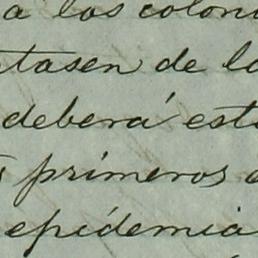 a los colon
tasen de lo
deberá est
s primeros
epidemia